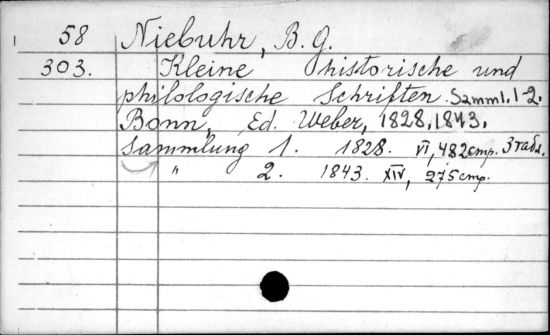 58 Niebuhr, B. G.
303. Kleine historische und
philologische Schriften. Samml. 1-2.
Bonn, Ed. Weber, 1828, 1843.
Sammlung 1. 1828. VI, 482 стр. 3 табл.
" 2. 1843. XIV, 275 стр.